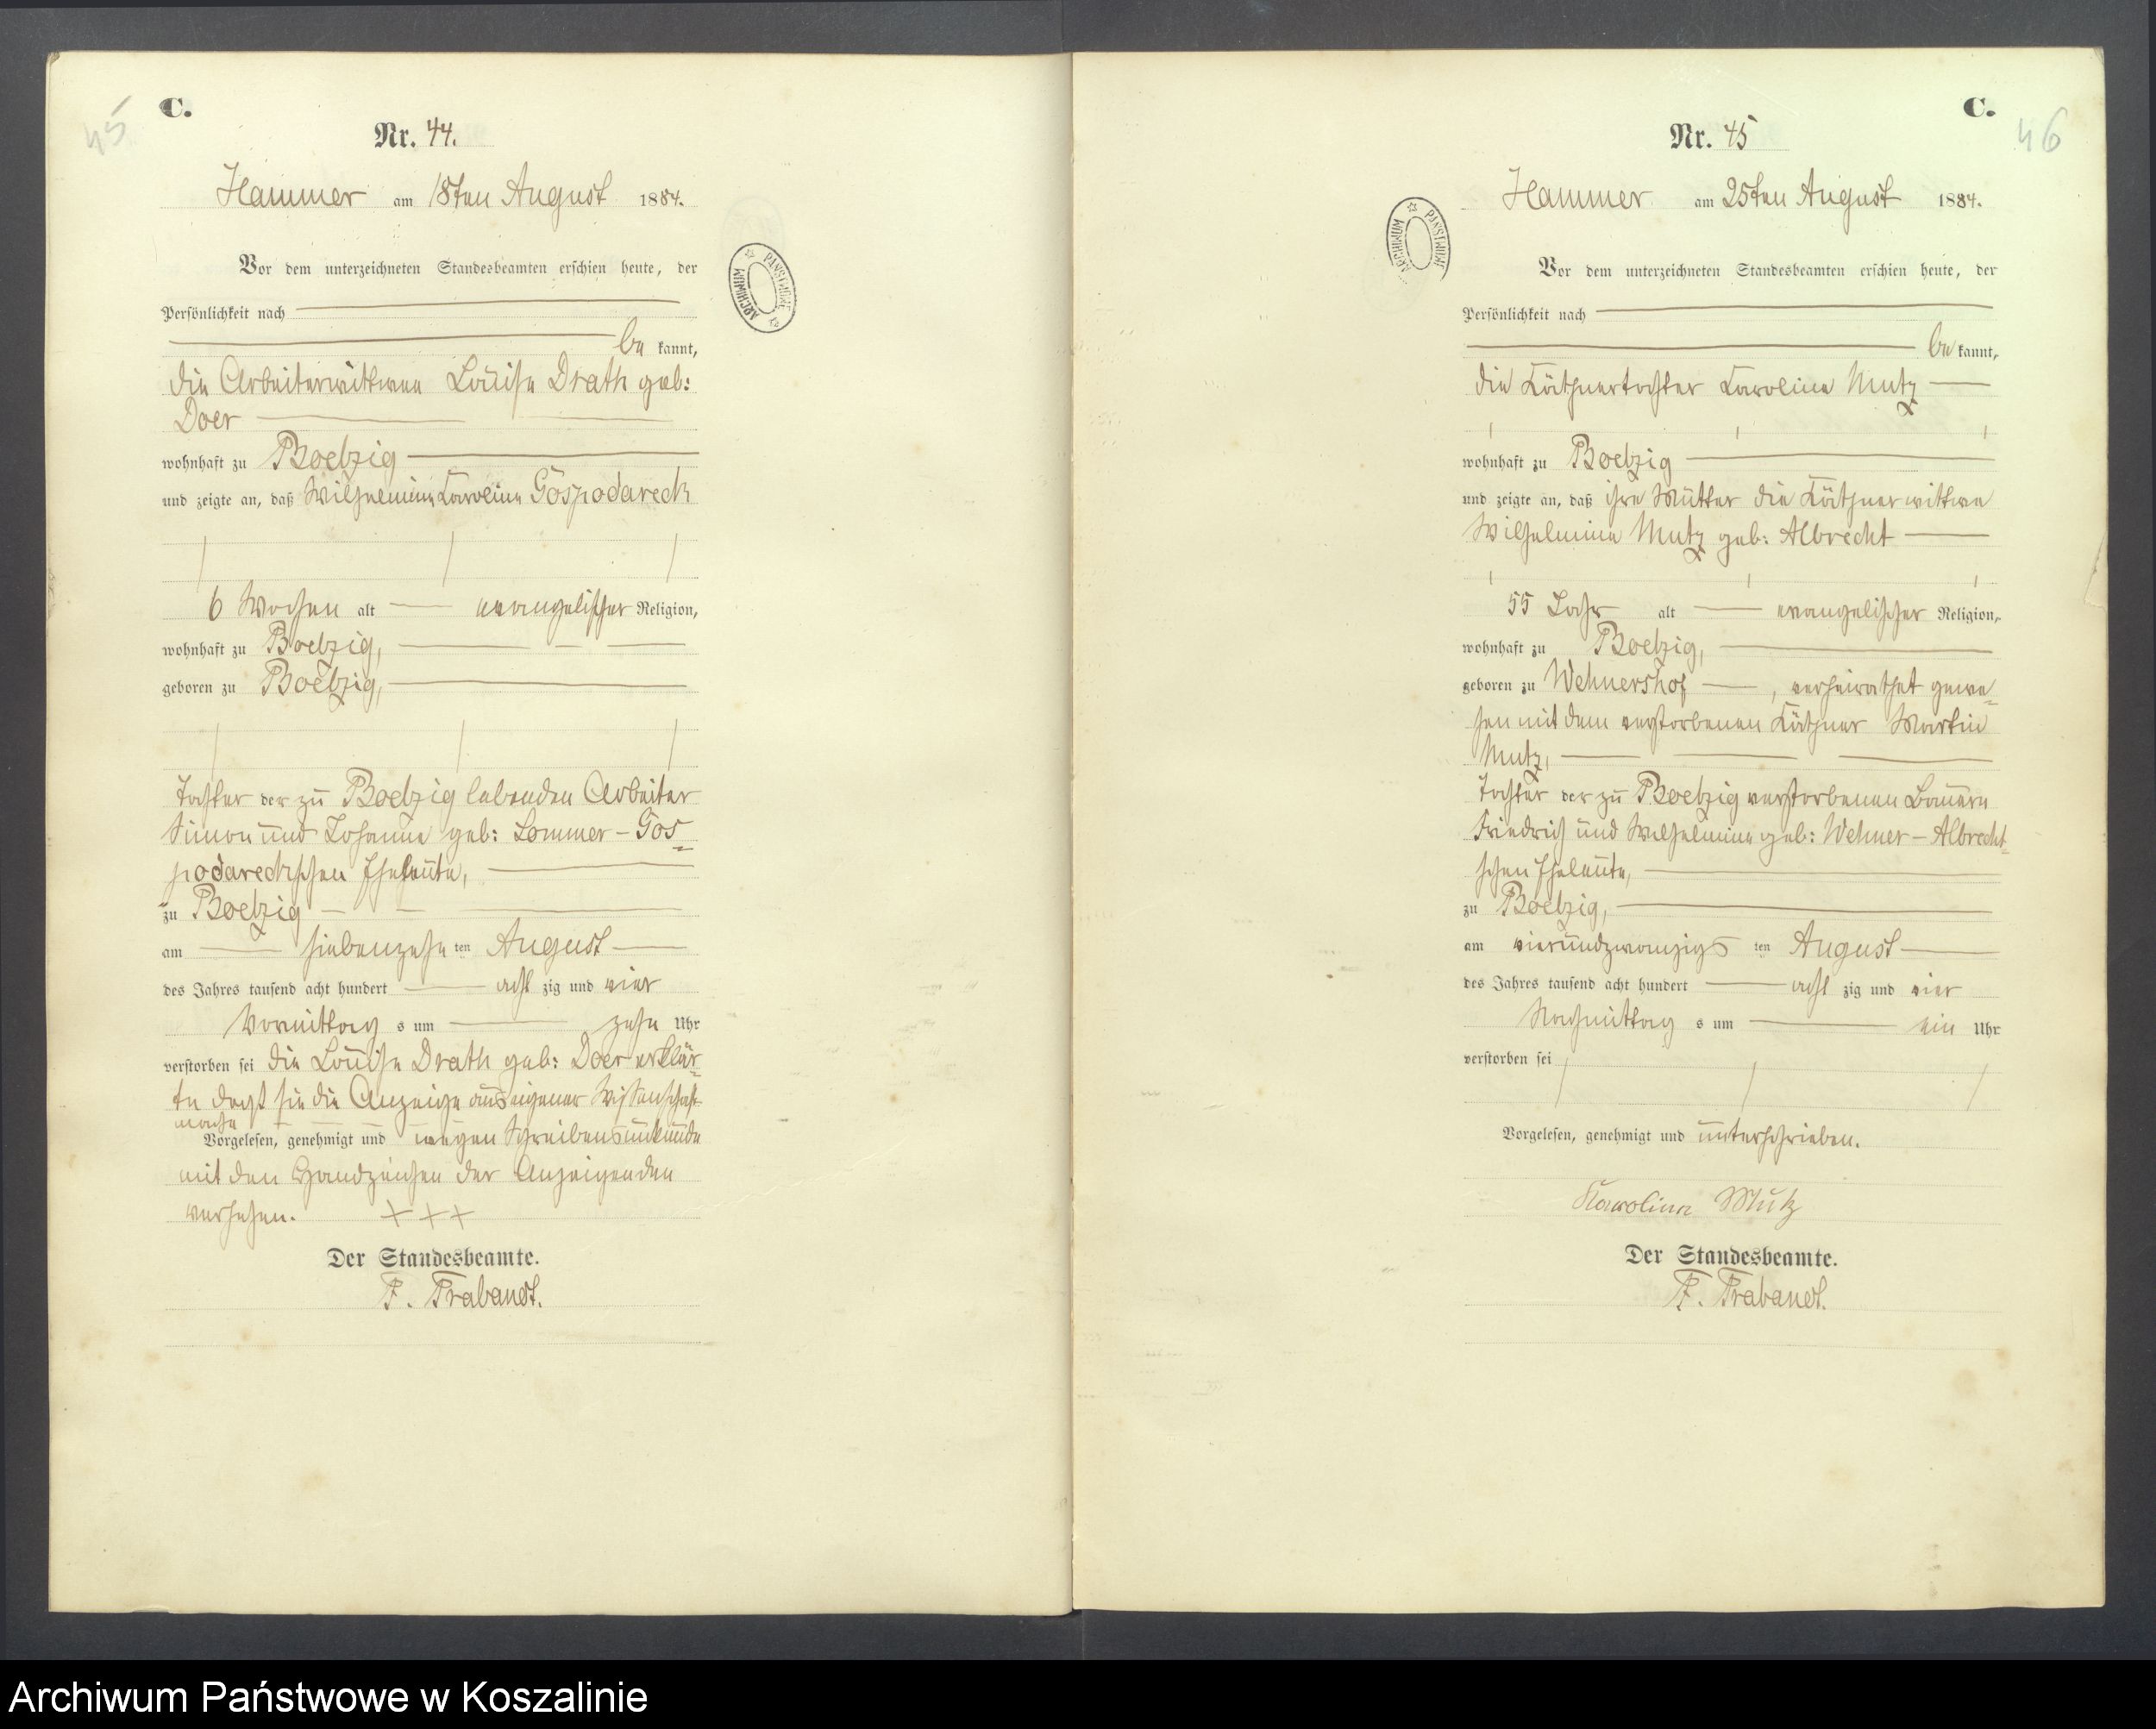 45
C.
Nr. 44.
Hammer am 18ten August 1884.
Vor dem unterzeichneten Standesbeamten erschien heute, der
Persönlichkeit nach
be kannt,
die Arbeiterwittwee Louise Drath geb:
Doer
wohnhaft zu Boetzig
und zeigte an, daß Wilhelmine Caroline Gospodareck
6 Wochen alt evangelischer Religion,
wohnhaft zu Boetzig,
geboren zu Boetzig,
Tochter der zu Boetzig lebenden Arbeiter
Simon und Johanne geb: Sommer - Gos=
podareckschen Eheleute,
zu Boetzig
am siebenzehn ten August
des Jahres tausend acht hundert acht zig und vier
Vormittag s um zehn Uhr
verstorben sei die Louise Drath geb: Doer erklär=
te daß sie die Anzeige aus eigener Wissenschaft
mache
Vorgelesen, genehmigt und wegen Schreibensunkunde
mit den Handzeichen der Anzeigenden
versehen. +++
Der Standesbeamte.
F. Trabandt.
ARCHIWUM PAŃSTWOWE
C.
46
Nr. 45
Hammer am 25ten August 1884.
Vor dem unterzeichneten Standesbeamten erschien heute, der
Persönlichkeit nach
be kannt,
die Käthnertochter Caroline Mutz
wohnhaft zu Boetzig
und zeigte an, daß ihre Mutter die Käthnerwittwe
Wilhelmine Mutz geb: Albrecht
55 Jahr alt evangelischer Religion,
wohnhaft zu Boetzig,
geboren zu Wehnershof, verheirathet gewe=
sen mit dem verstorbenen Käthner Martin
Mutz,
Tochter der zu Boetzig verstorbenen Bauern
Friedrich und Wilhelmine geb: Wehner - Albrecht=
schen Eheleute,
zu Boetzig,
am vierundzwanzigs ten August
des Jahres tausend acht hundert acht zig und vier
Nachmittag s um ein Uhr
verstorben sei
Vorgelesen, genehmigt und unterschrieben.
Karolina Mutz
Der Standesbeamte.
F. Trabandt.
ARCHIWUM PAŃSTWOWE
Archiwum Państwowe w Koszalinie